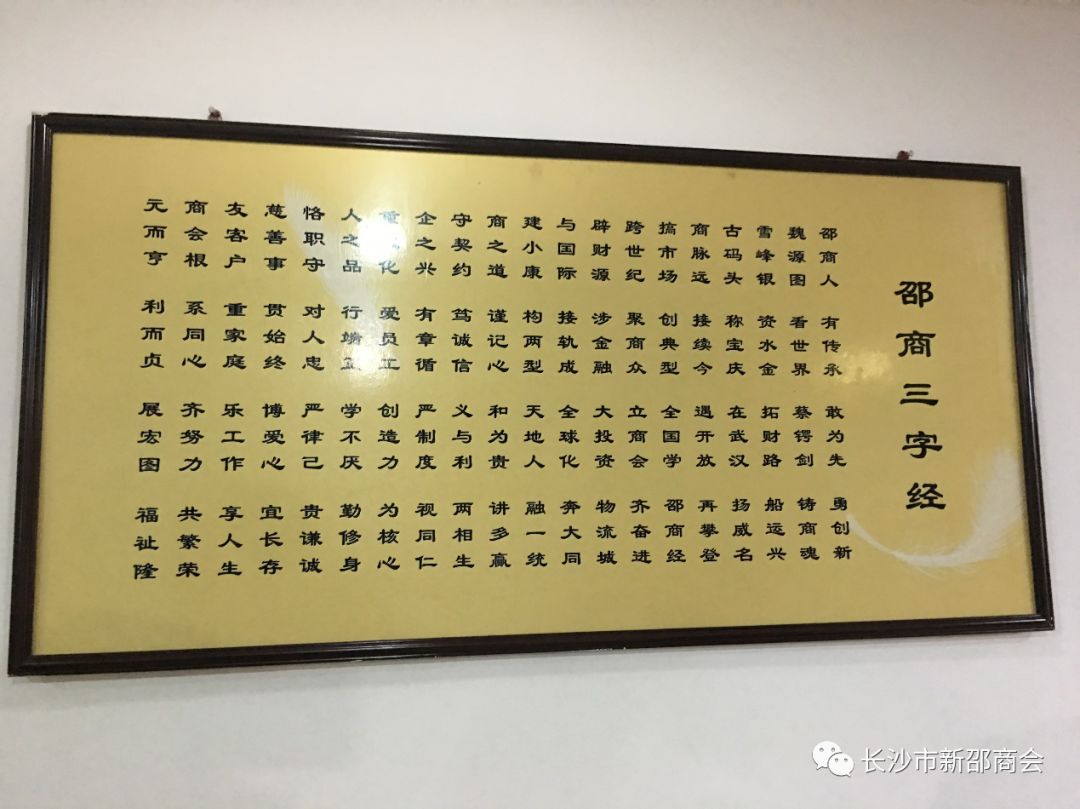 邵商三字经
邵商人 有传承 敢为先 勇创新
魏源图 看世界 蔡锷剑 铸商魂
雪峰银 资水金 拓财路 船运兴
古码头 称宝庆 在武汉 扬威名
商脉远 接续今 遇开放 再攀登
搞市场 创典型 全国学 邵商经
跨世纪 聚商众 立商会 齐奋进
辟财源 涉金融 大投资 物流城
与国际 接轨成 全球化 奔大同
建小康 构两型 天地人 融一统
商之道 谨记心 和为贵 讲多赢
守契约 笃诚信 义与利 两相生
企之兴 有章循 严制度 视同仁
化 爱员工 创造力 为核心
人之品 行端正 学不厌 勤修身
恪职守 对人忠 严律己 贵谦诚
慈善事 贯始终 博爱心 宜长存
友客户 重家庭 乐工作 享人生
商会根 系同心 齐努力 共繁荣
元而亨 利而贞 展宏图 福祉隆
长沙市新邵商会